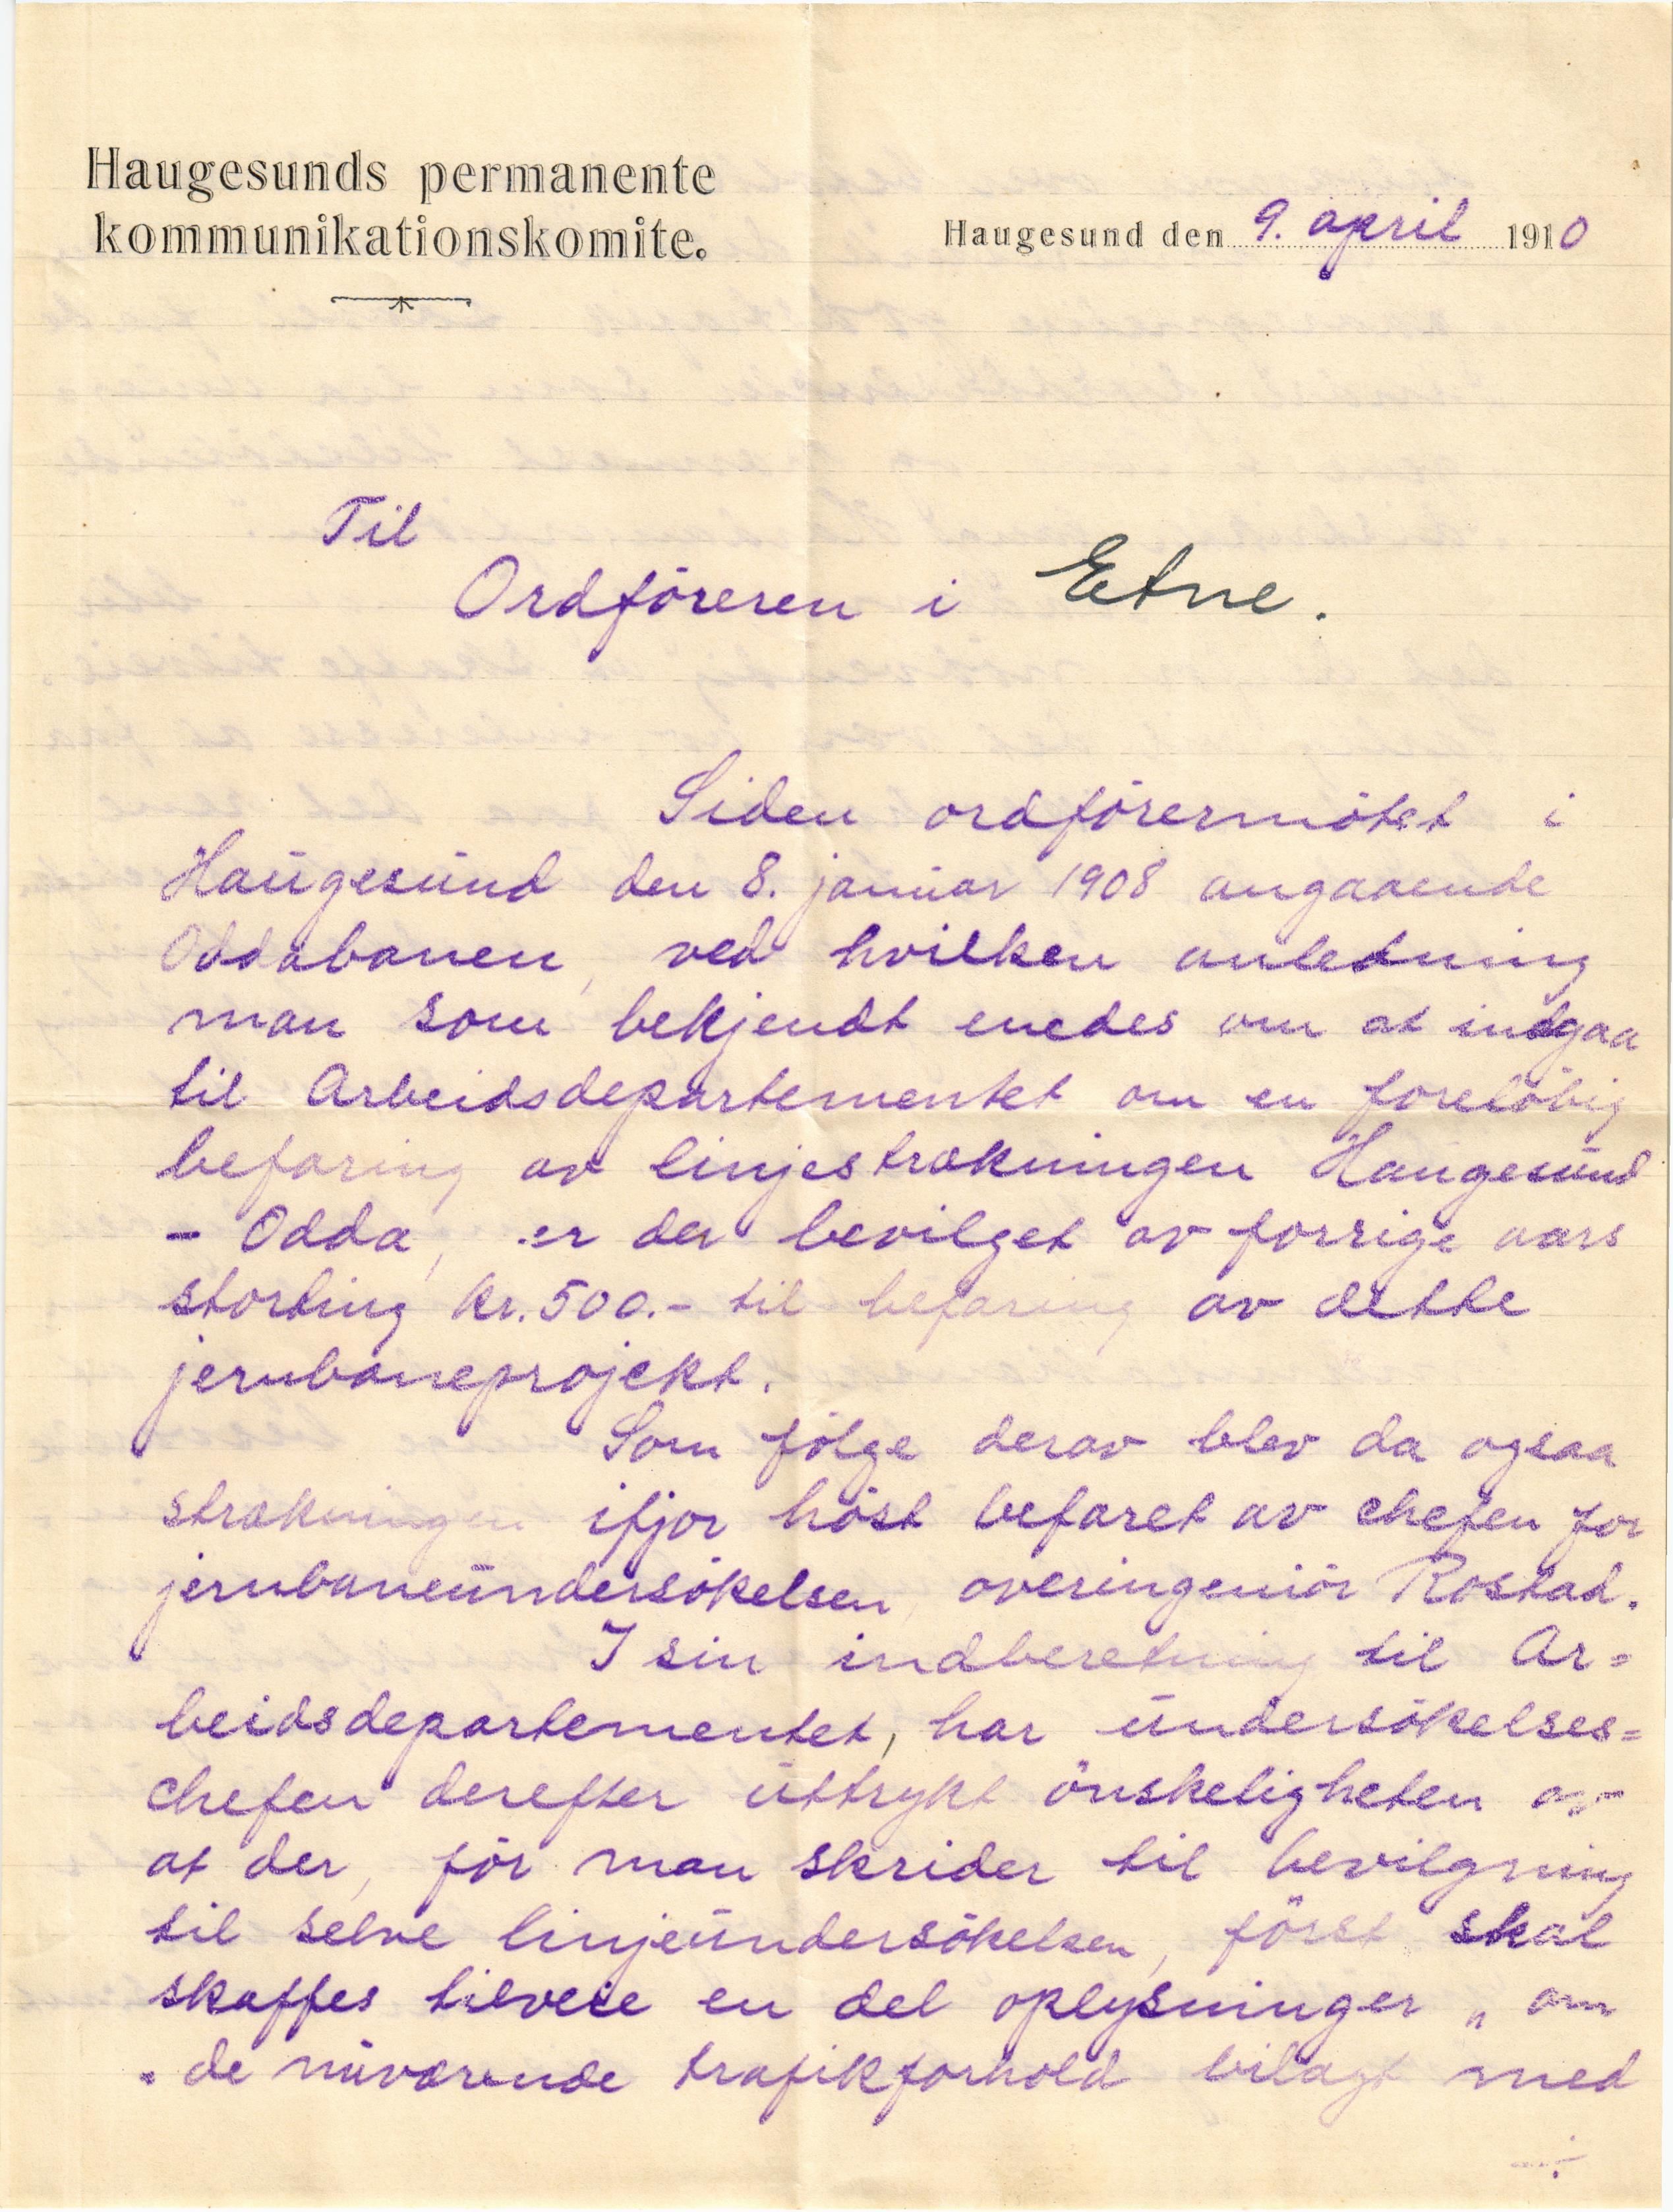 Haugesunds permanente
kommunikationskomite.
Haugesund den 9. april 1910
Til
Ordföreren i Etne.
Siden ordförermötet i
Haugesund den 8. januar 1908 angaaende
Oddabanen, ved hvilken anledning
man som bekjendt enedes om at indgaa
til Arbeidsdepartementet om en forelöbig
befaring av linjestrækningen Haugesund
- Odda, er der bevilget av forrige aars
storting kr. 500.- til befaring av dette
jernbaneprojekt.
Som fölge derav blev da ogsaa
strækningen ifjor höst befaret av chefen for
jernbaneundersökelsen, overingeniör Rostad.
I sin indberetning til Ar=
beidsdepartementet, har undersökelses=
chefen derefter uttrykt önskeligheten av
at der, för man skrider til bevilgning
til selve linjeundersökelsen, först skal
skaffes tilveie en del oplysninger „om
„de nuværende trafikforhold bilagt med